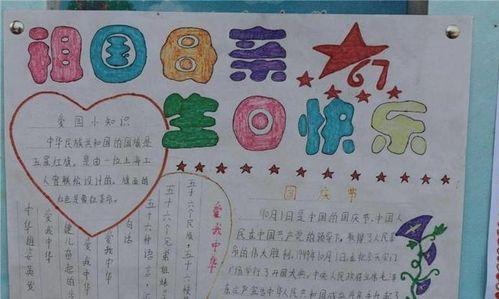 祖国母亲
67
生日快乐
爱国小知识
中华民族共和国的国旗是
五星红旗。是由一位上海工
人曾联松设计的。旗面的
红色是象征革命。
国庆节
10月1日是中国的国庆节,中国人
民在中国共产党的领导下,取得了人民革
命的伟大胜利。1949年10月1日在北京天安门
广场举行了开国大典,中央人民政府主席毛泽
爱我中华
五十六个民族,五十六
五十六个兄弟姐妹
五十六种语言,汇
爱我中华
爱我中华
中华雄姿英发